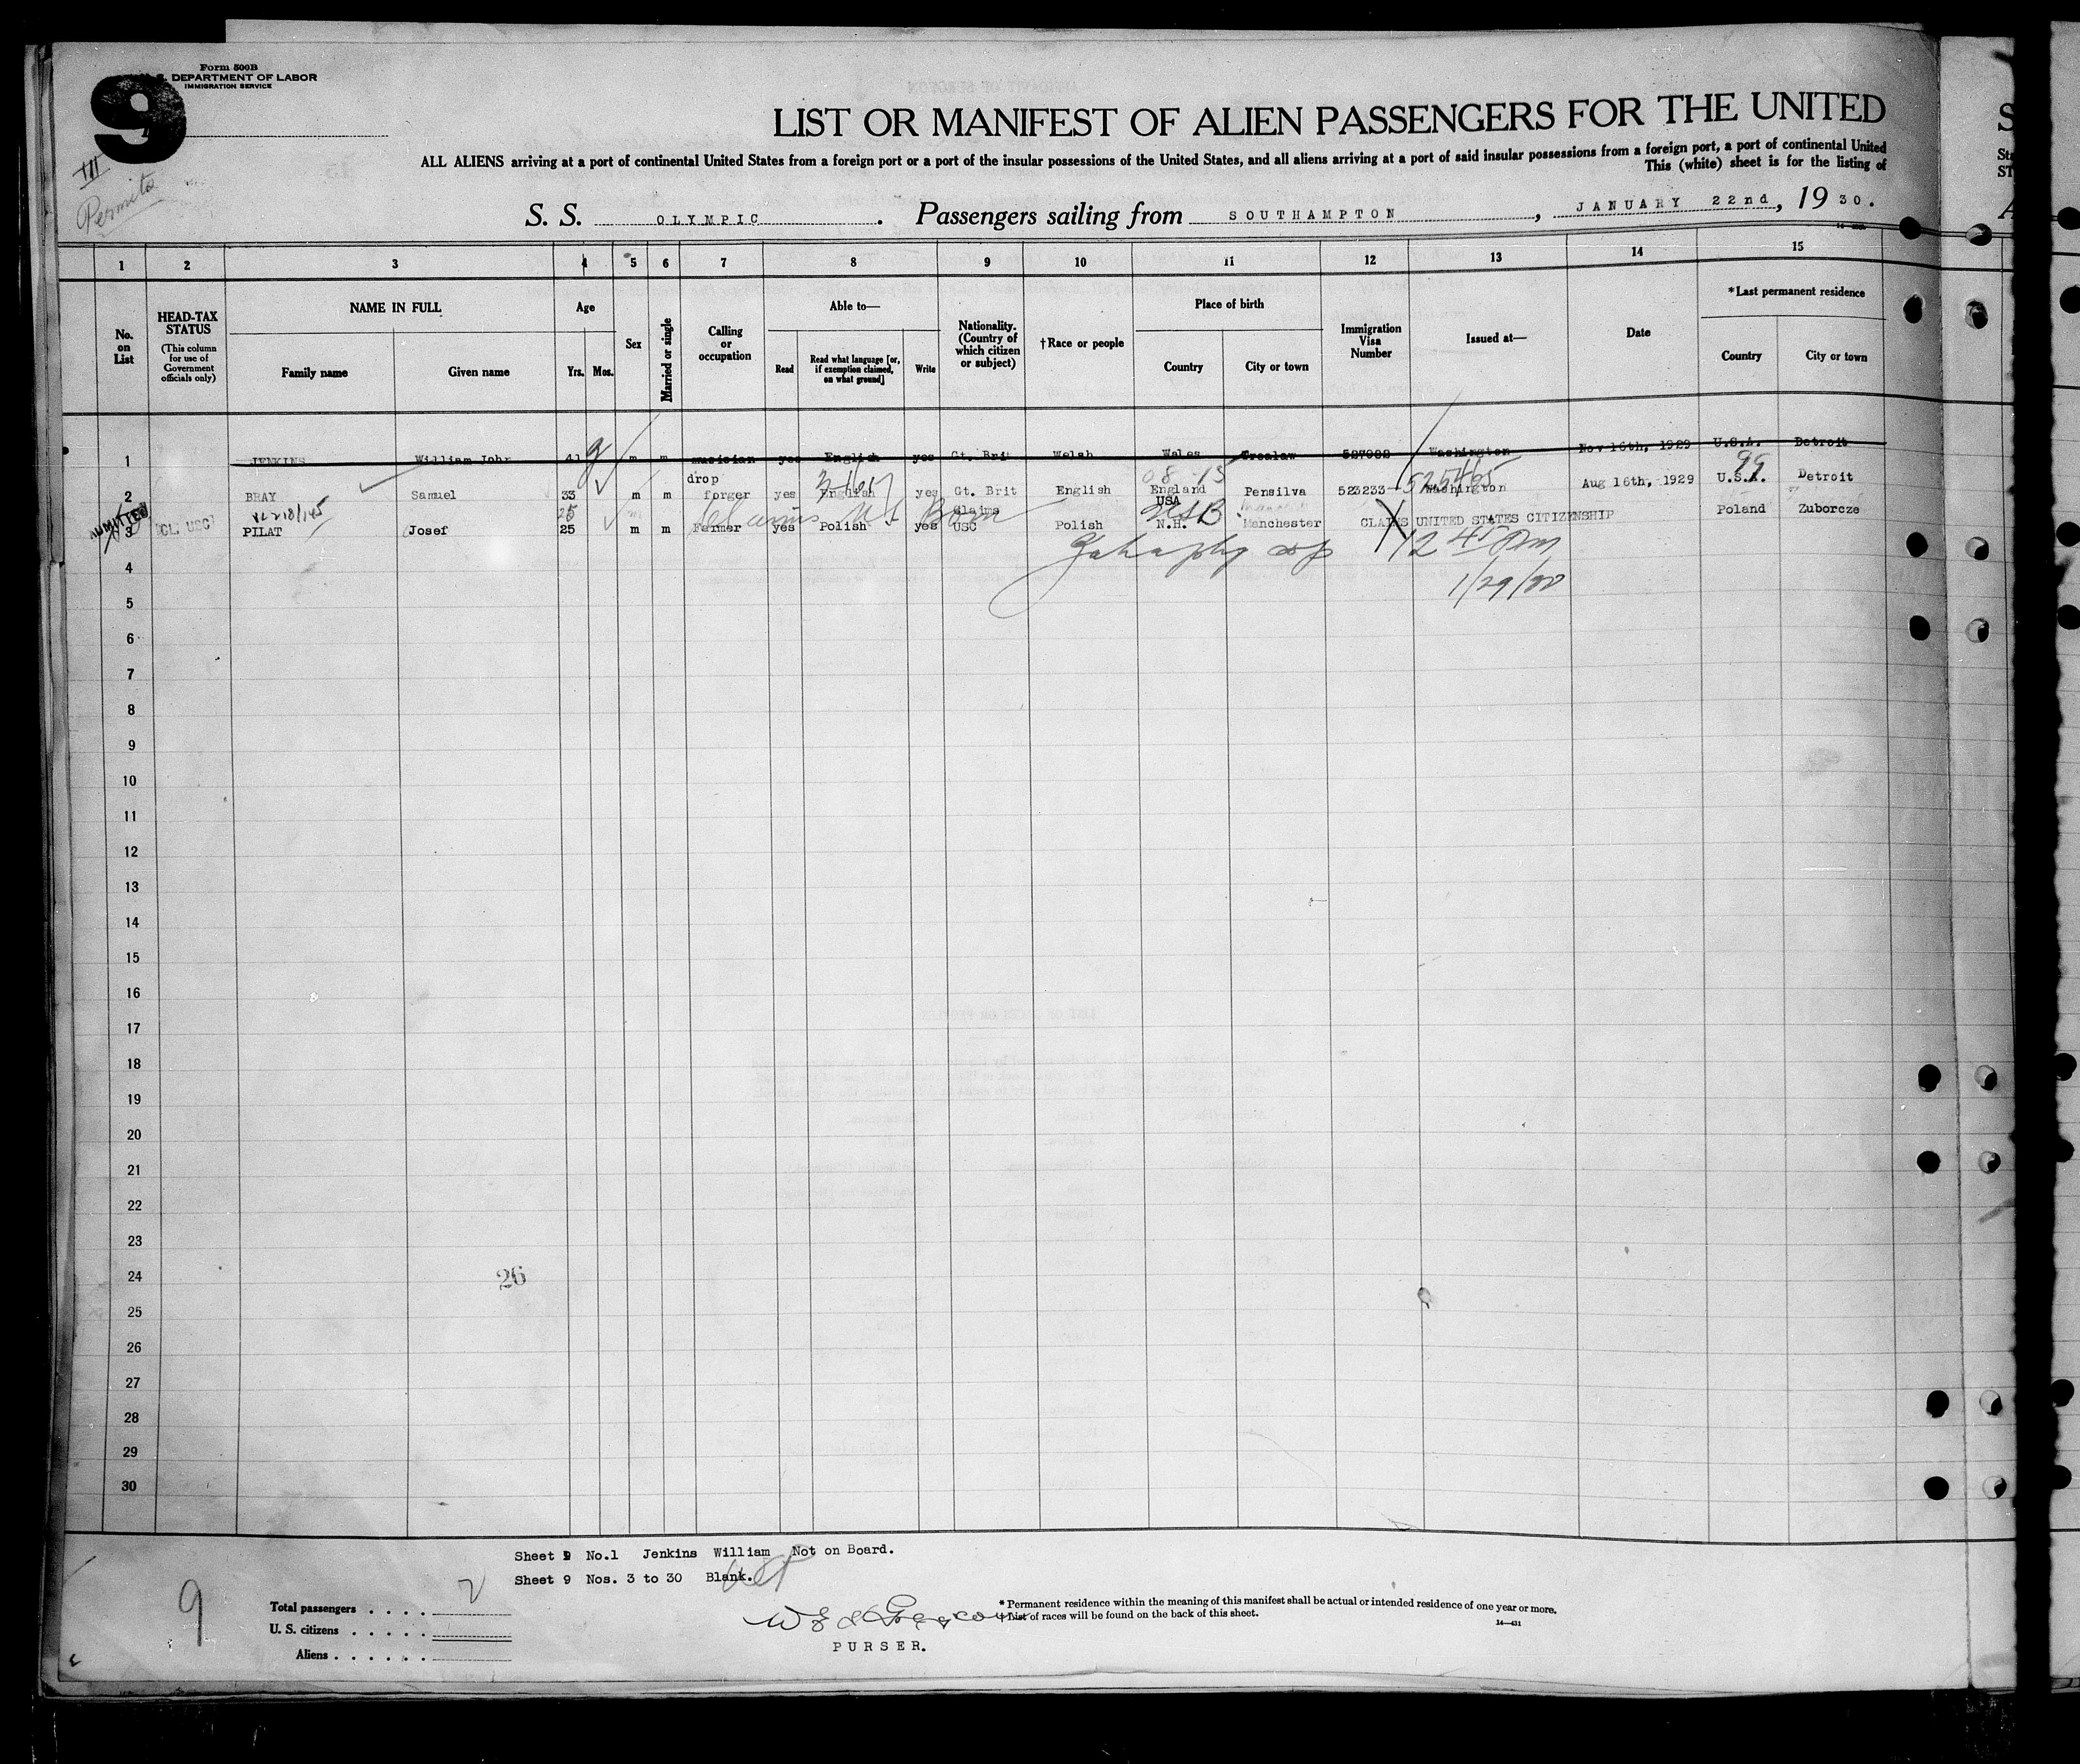 Form 500B
U. S. DEPARTMENT OF LABOR
IMMIGRATION SERVICE
9
III
Permits
LIST OR MANIFEST OF ALIEN PASSENGERS FOR THE UNITED
ALL ALIENS arriving at a port of continental United States from a foreign port or a port of the insular possessions of the United States, and all aliens arriving at a port of said insular possessions from a foreign port, a port of continental United
This (white) sheet is for the listing of
S. S. OLYMPIC. Passengers sailing from SOUTHAMPTON, JANUARY 22nd, 1930.
1 2 3 4 5 6 7 8 9 10 11 12 13 14 15
No. on List
HEAD-TAX STATUS
(This column for use of Government officials only)
NAME IN FULL
Family name Given name
Age
Yrs. Mos.
Sex
Married or single
Calling or occupation
Able to—
Read Read what language [or, if exemption claimed, on what ground] Write
Nationality. (Country of which citizen or subject)
†Race or people
Place of birth
Country City or town
Immigration Visa Number
Issued at—
Date
*Last permanent residence
Country City or town
1 JENKINS William John 41 m m musician yes English yes Gt. Brit Welsh Wales Trealaw 527002 Washington Nov 16th, 1929 U.S.A. Detroit
99
drop
2 BRAY Samuel 33 m m forger yes English yes Gt. Brit English England Pensilva 523233 Washington Aug 16th, 1929 U.S.A. Detroit
525465
ADMITTED
CL. USC
VL 218/145
25 Claims US Born Claims USA USB
3 PILAT Josef 25 m m Farmer yes Polish yes USC Polish N.H. Manchester CLAIMS UNITED STATES CITIZENSHIP Poland Zuborcze
12 45 Pm
1/29/30
4
5
6
7
8
9
10
11
12
13
14
15
16
17
18
19
20
21
22
23
24
26
25
26
27
28
29
30
Sheet 9 No.1 Jenkins William Not on Board.
Sheet 9 Nos. 3 to 30 Blank.
9
Total passengers . . . . 2
U. S. citizens . . . . .
Aliens . . . . . .
PURSER.
* Permanent residence within the meaning of this manifest shall be actual or intended residence of one year or more.
† List of races will be found on the back of this sheet.